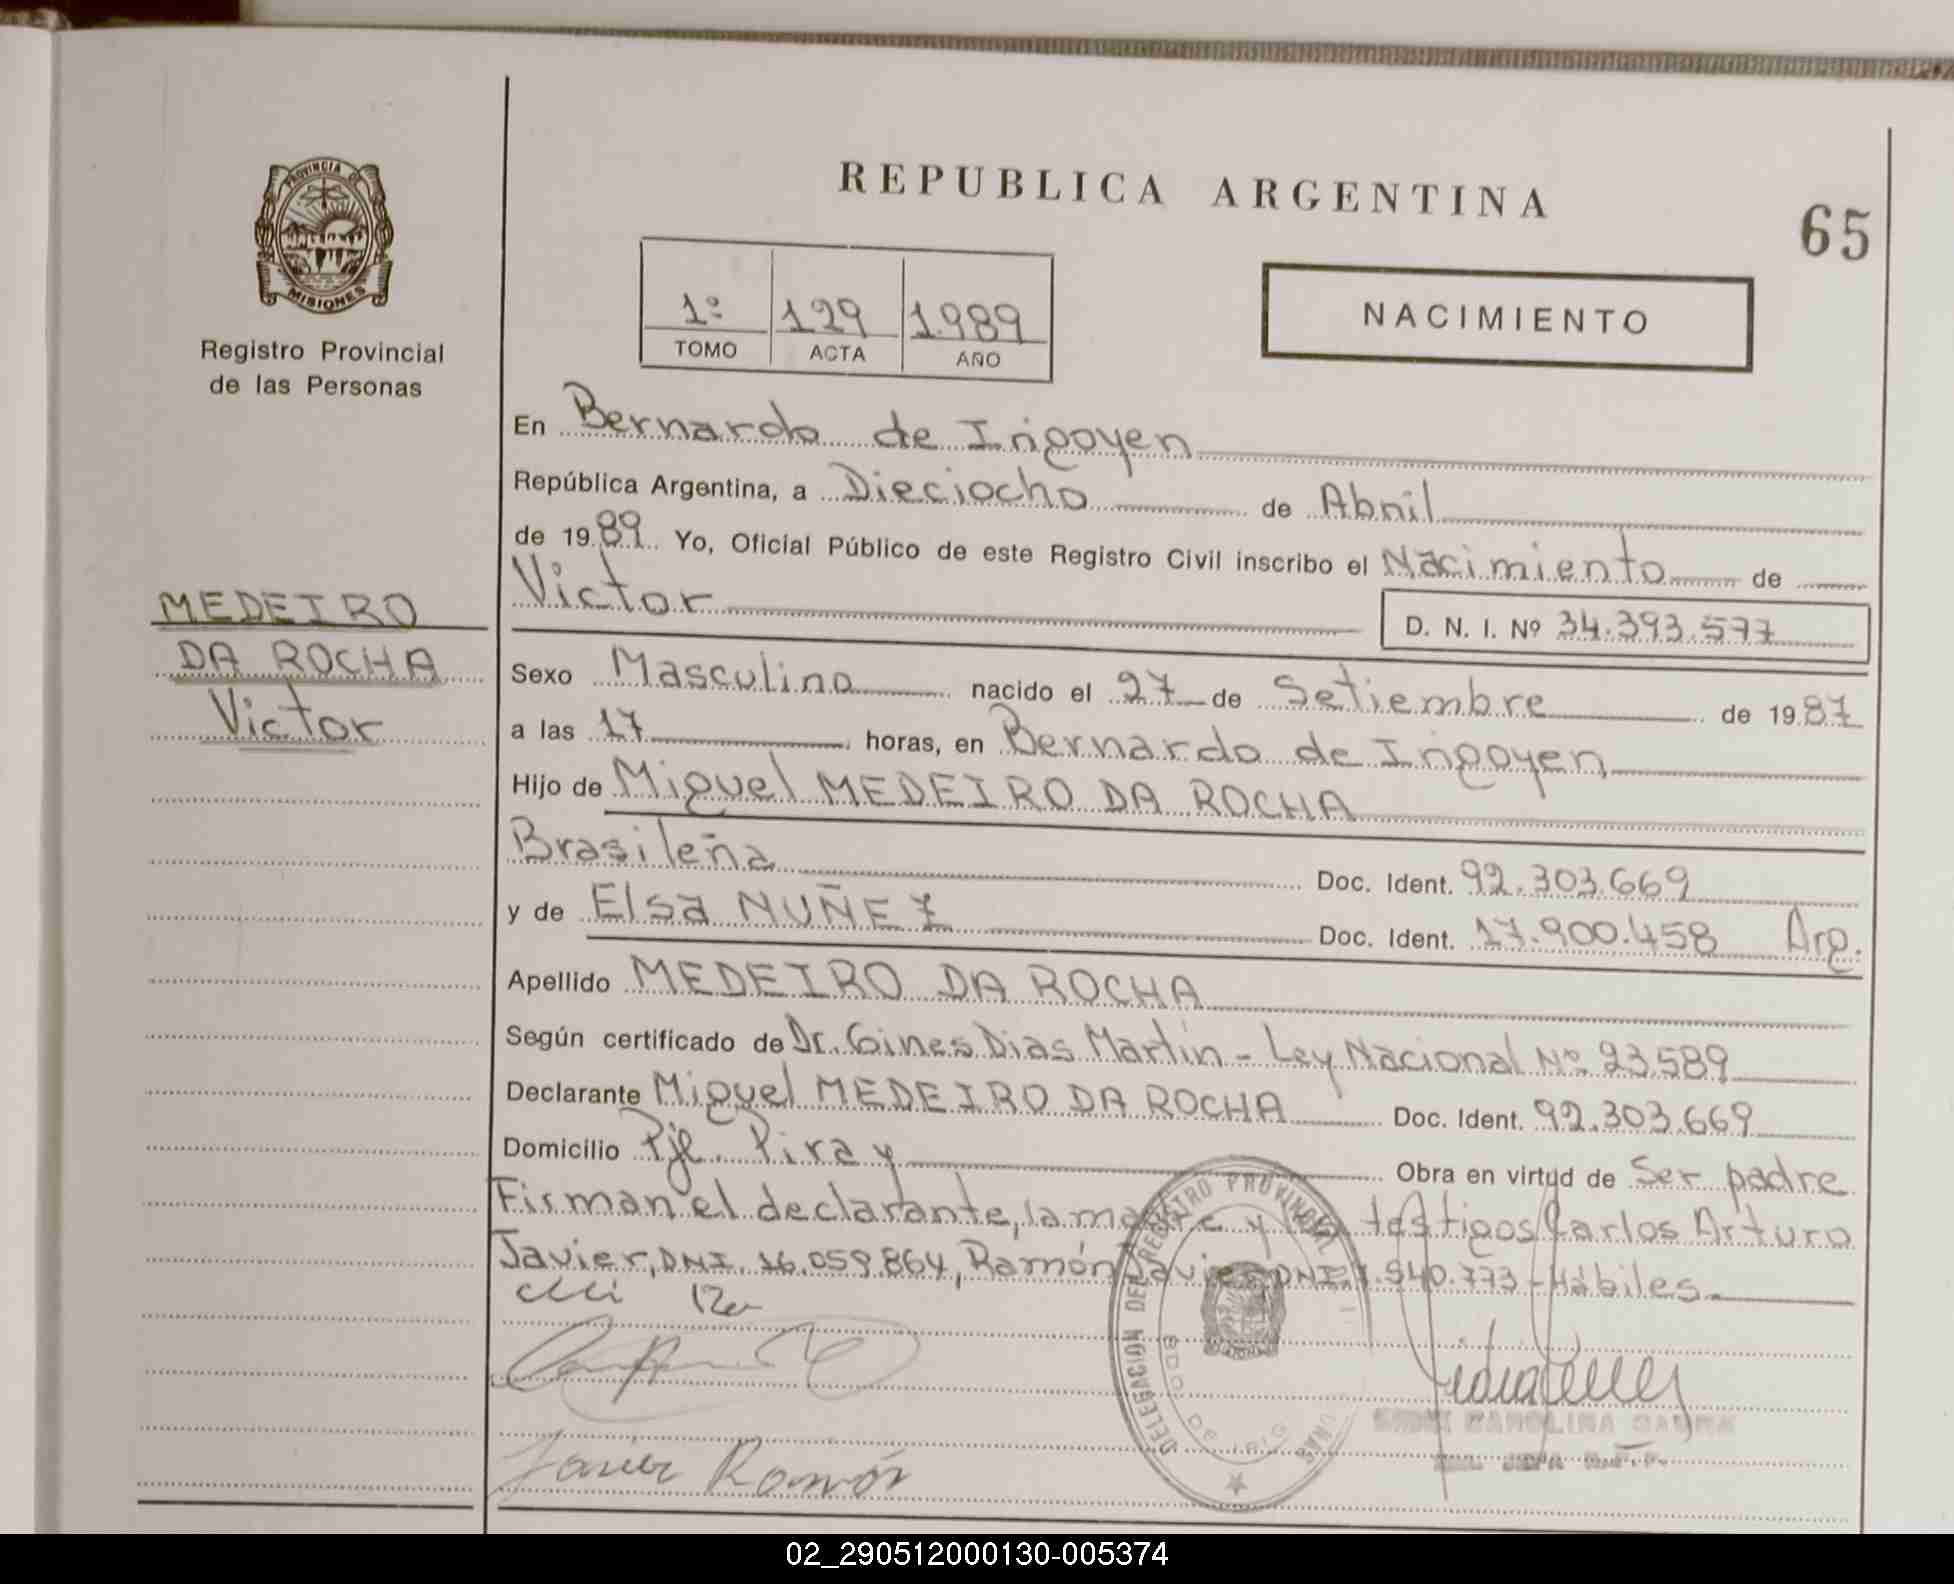 REPUBLICA ARGENTINA
65
PROVINCIA DE
MISIONES
Registro Provincial
de las Personas
1º 129 1.989
TOMO ACTA AÑO
NACIMIENTO
En Bernardo de Irigoyen
República Argentina, a Dieciocho de Abril
de 1989 Yo, Oficial Público de este Registro Civil inscribo el Nacimiento de
Victor D. N. I. Nº 34.393.577
MEDEIRO
DA ROCHA
Victor
Sexo Masculino nacido el 27 de Setiembre de 1987
a las 17 horas, en Bernardo de Irigoyen
Hijo de Miguel MEDEIRO DA ROCHA
Brasileña Doc. Ident. 92.303.669
y de Elsa NUÑEZ Doc. Ident. 17.900.458 Arg.
Apellido MEDEIRO DA ROCHA
Según certificado de Dr. Gines Dias Martin - Ley Nacional Nº 23.589
Declarante Miguel MEDEIRO DA ROCHA Doc. Ident. 92.303.669
Domicilio Pje. Piray Obra en virtud de Ser padre
Firman el declarante, la madre y los testigos Carlos Arturo
Javier, DNI. 16.059.864, Ramón Javier DNI. 7.540.773 - Hábiles
Javier Ramón
DELEGACION DEL REGISTRO PROVINCIAL
BDO DE IRIG
CAROLINA
02_290512000130-005374